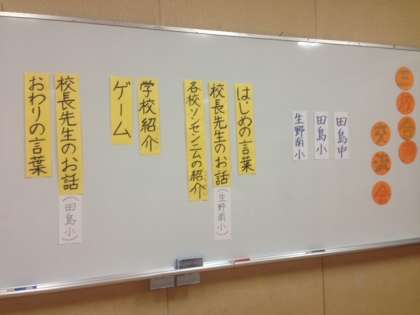 三校合同
交流会
田島中
田島小
生野南小
はじめの言葉
校長先生のお話
(生野南小)
各校ソンセンニムの紹介
学校紹介
ゲーム
校長先生のお話
(田島小)
おわりの言葉